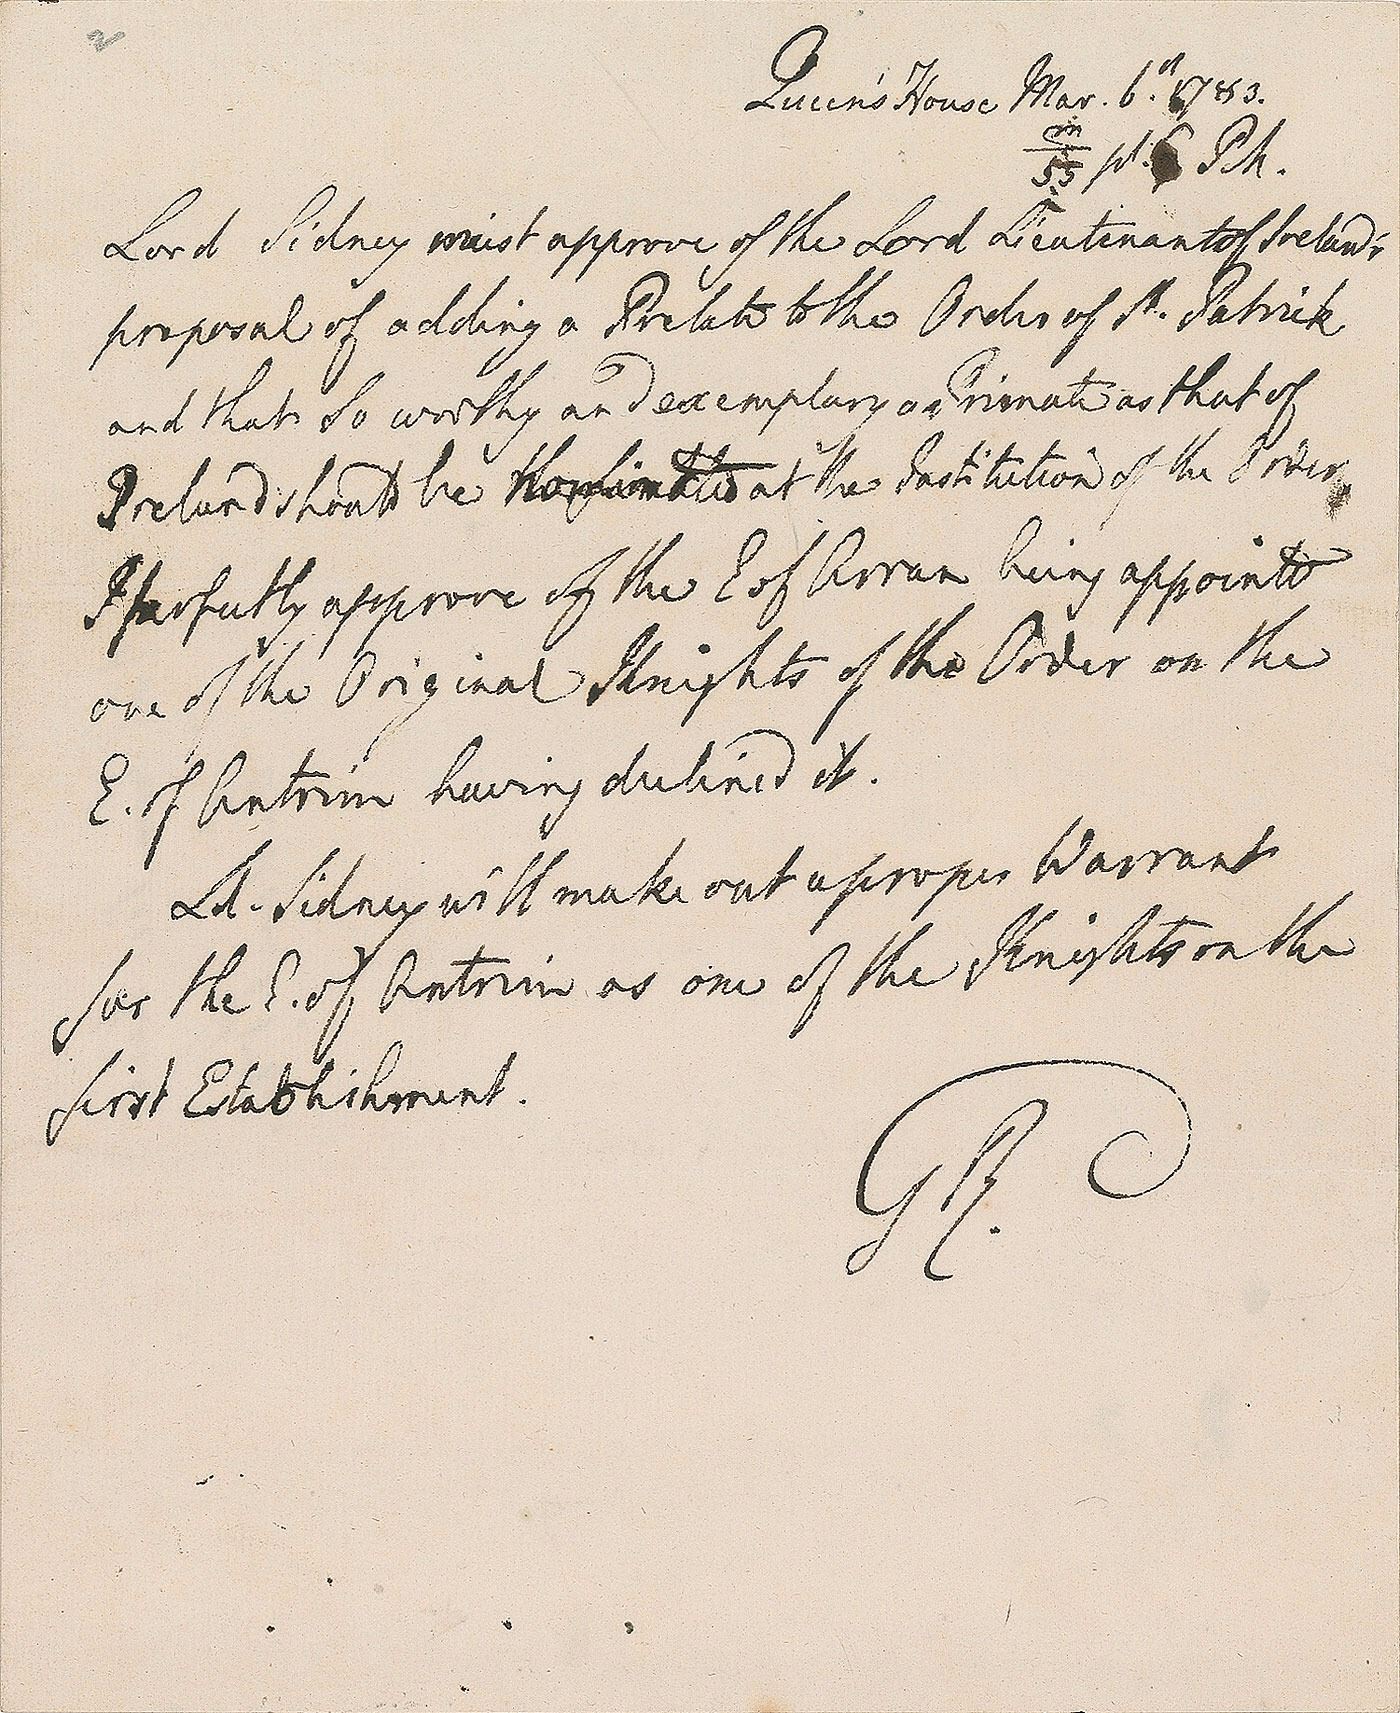 2
Queen's House Mar. 6th 1783.
m/55 pt. 6 PM.
Lord Sidney must approve of the Lord Lieutenant of Ireland's
proposal of adding a Prelate to the Order of St. Patrick
and that So worthy and exemplary a Primate as that of
Ireland should be Nominated at the Institution of the Order.
I perfectly approve of the E of Arran being appointed
one of the Original Knights of the Order on the
E. of Antrim having declined it.
Ld. Sidney will make out a proper Warrant
for the E. of Antrim as one of the Knights on the
first Establishment.
GR.